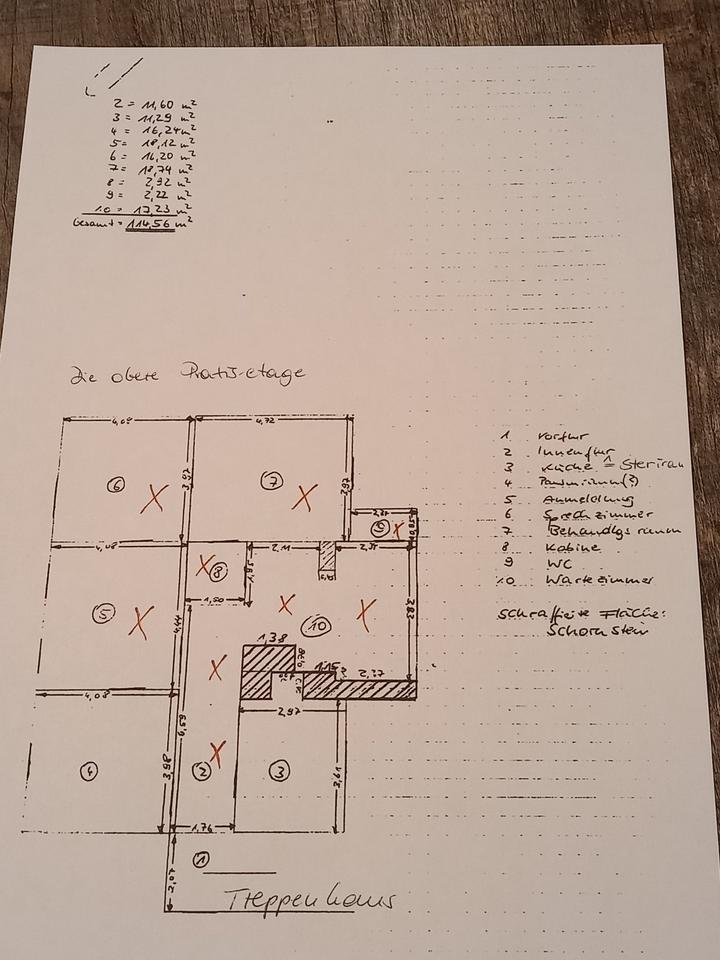 2 = 11,60 m²
3 = 11,29 m²
4 = 16,24 m²
5 = 18,12 m²
6 = 16,20 m²
7 = 18,74 m²
8 = 2,92 m²
9 = 2,22 m²
10 = 17,23 m²
Gesamt = 114,56 m²
Die obere Praxis-etage
4,09
4,72
3,97
3,97
6
7
2,27
9
4,08
2,11
2,35
8
1,95
1,50
5
4,44
10
3,83
1,38
0,78
1,15
2,37
4,08
2,97
6,59
4
3,98
2
3
3,61
1,76
1
2,07
Treppenhaus
1 Vorflur
2 Innenflur
3 Küche ≙ Steriraum
4
5 Anmeldung
6 Sprechzimmer
7 Behandlgs raum
8 Kabine
9 WC
10 Wartezimmer
Schraffierte Fläche:
Schornstein